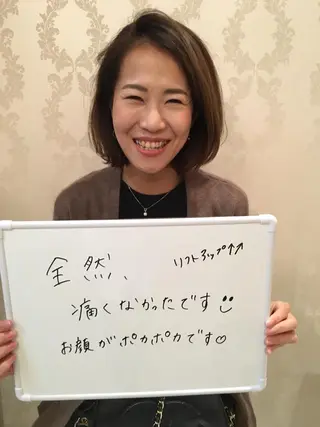 全然、
リフトアップ↑↑
痛くなかったです☺
お顔がポカポカです♡